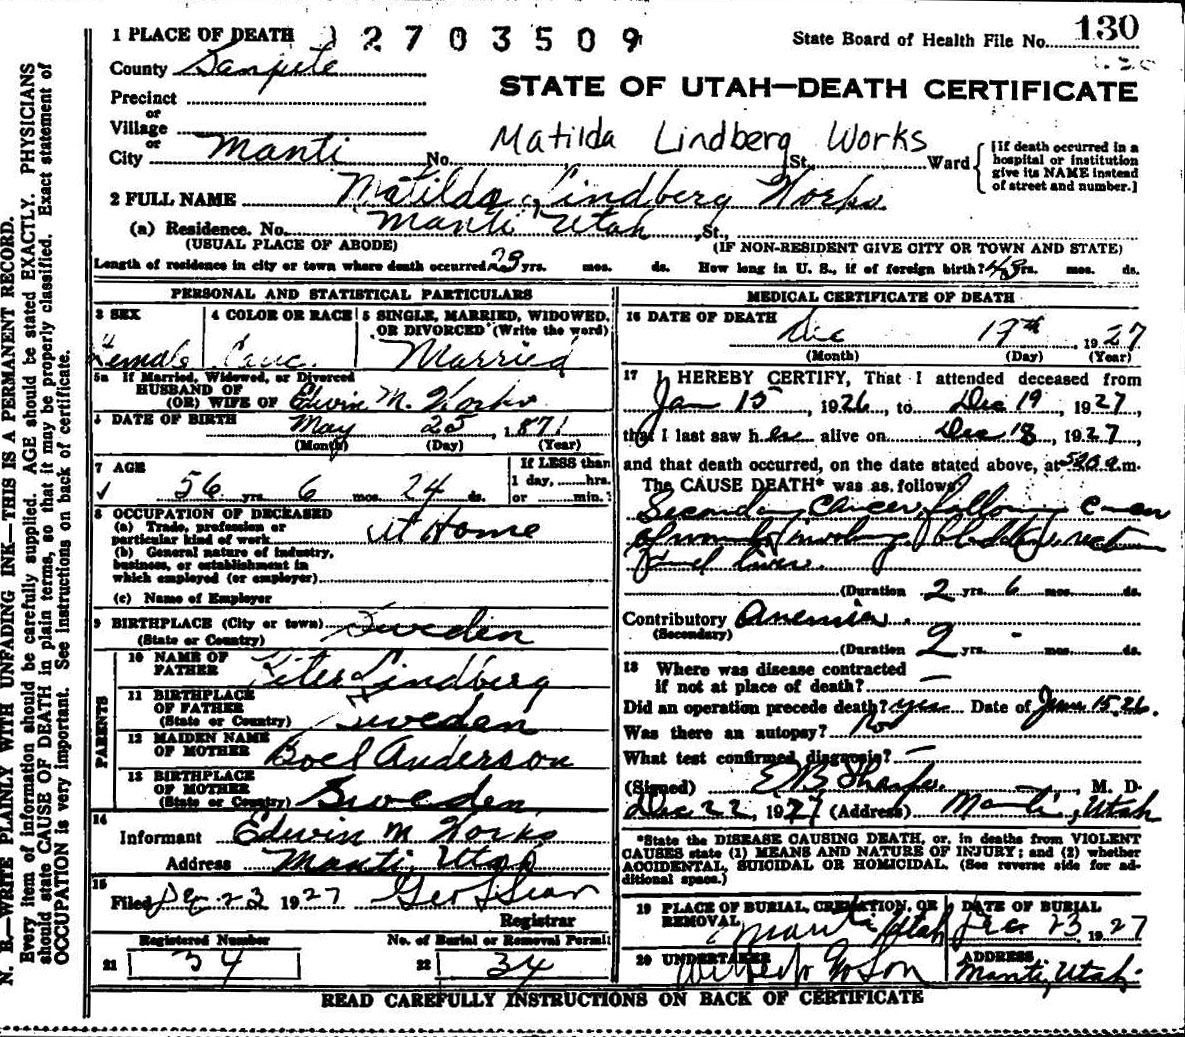 1 PLACE OF DEATH 2703509 State Board of Health File No. 130
County Sanpete
STATE OF UTAH—DEATH CERTIFICATE
Precinct
or
Village
or
City Manti No. Matilda Lindberg Works St. Ward
[If death occurred in a
hospital or institution
give its NAME instead
of street and number.]
2 FULL NAME Matilda Lindberg Works
(a) Residence. No. Manti Utah St.,
(USUAL PLACE OF ABODE) (IF NON-RESIDENT GIVE CITY OR TOWN AND STATE)
Length of residence in city or town where death occurred 23 yrs. mos. ds. How long in U. S., if of foreign birth? 43 yrs. mos. ds.
PERSONAL AND STATISTICAL PARTICULARS
3 SEX
Female
4 COLOR OR RACE
Cauc.
5 SINGLE, MARRIED, WIDOWED,
OR DIVORCED (Write the word)
Married
5a If Married, Widowed, or Divorced
HUSBAND OF
(OR) WIFE OF Edwin M. Works
6 DATE OF BIRTH May 25 1871
(Month) (Day) (Year)
7 AGE
56 yrs. 6 mos. 24 ds.
If LESS than
1 day, hrs.
or min.?
8 OCCUPATION OF DECEASED
(a) Trade, profession or
particular kind of work At Home
(b) General nature of industry,
business, or establishment in
which employed (or employer)
(c) Name of Employer
9 BIRTHPLACE (City or town)
(State or Country) Sweden
PARENTS
10 NAME OF
FATHER Peter Lindberg
11 BIRTHPLACE
OF FATHER
(State or Country) Sweden
12 MAIDEN NAME
OF MOTHER Boel Anderson
13 BIRTHPLACE
OF MOTHER
(State or Country) Sweden
14
Informant Edwin M Works
Address Manti, Utah
15
Filed Dec 23 1927
Registrar
Registered Number
21 34
No. of Burial or Removal Permit
22 34
MEDICAL CERTIFICATE OF DEATH
16 DATE OF DEATH
Dec 19th, 1927
(Month) (Day) (Year)
17 I HEREBY CERTIFY, That I attended deceased from
Jan 15, 1926, to Dec 19, 1927,
that I last saw her alive on Dec 18, 1927,
and that death occurred, on the date stated above, at 5:20 a.m.
The CAUSE DEATH* was as follows:
Secondary Cancer following Cancer
of womb involving bladder, rectum
and liver.
(Duration 2 yrs. 6 mos. ds.
Contributory Anemia.
(Secondary)
(Duration 2 yrs. - mos. ds.
18 Where was disease contracted
if not at place of death? —
Did an operation precede death? yes Date of Jan 15, 26.
Was there an autopsy? No
What test confirmed diagnosis? —
(Signed) M. D.
Dec 22, 1927 (Address) Manti, Utah
*State the DISEASE CAUSING DEATH, or, in deaths from VIOLENT
CAUSES state (1) MEANS AND NATURE OF INJURY; and (2) whether
ACCIDENTAL, SUICIDAL OR HOMICIDAL. (See reverse side for ad-
ditional space.)
19 PLACE OF BURIAL, CREMATION, OR
REMOVAL
Manti Utah
DATE OF BURIAL
Dec 23, 1927
20 UNDERTAKER
& Son
ADDRESS
Manti, Utah.
READ CAREFULLY INSTRUCTIONS ON BACK OF CERTIFICATE
N. B.—WRITE PLAINLY WITH UNFADING INK—THIS IS A PERMANENT RECORD.
Every item of information should be carefully supplied. AGE should be stated EXACTLY. PHYSICIANS
should state CAUSE OF DEATH in plain terms, so that it may be properly classified. Exact statement of
OCCUPATION is very important. See instructions on back of certificate.